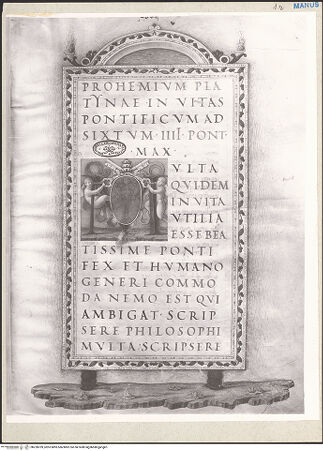 MANUS
PROHEMIVM PLA
TYNAE IN VITAS
PONTIFICVM AD
SIXTVM IIII PONT·
MAX·
VLTA
QVIDEM
IN VITA
VTILIA
ESSE BEA
TISSIME PONTI
FEX ET HVMANO
GENERI COMMO
DA NEMO EST QVI
AMBIGAT· SCRIP
SERE PHILOSOPHI
MVLTA· SCRIPSERE